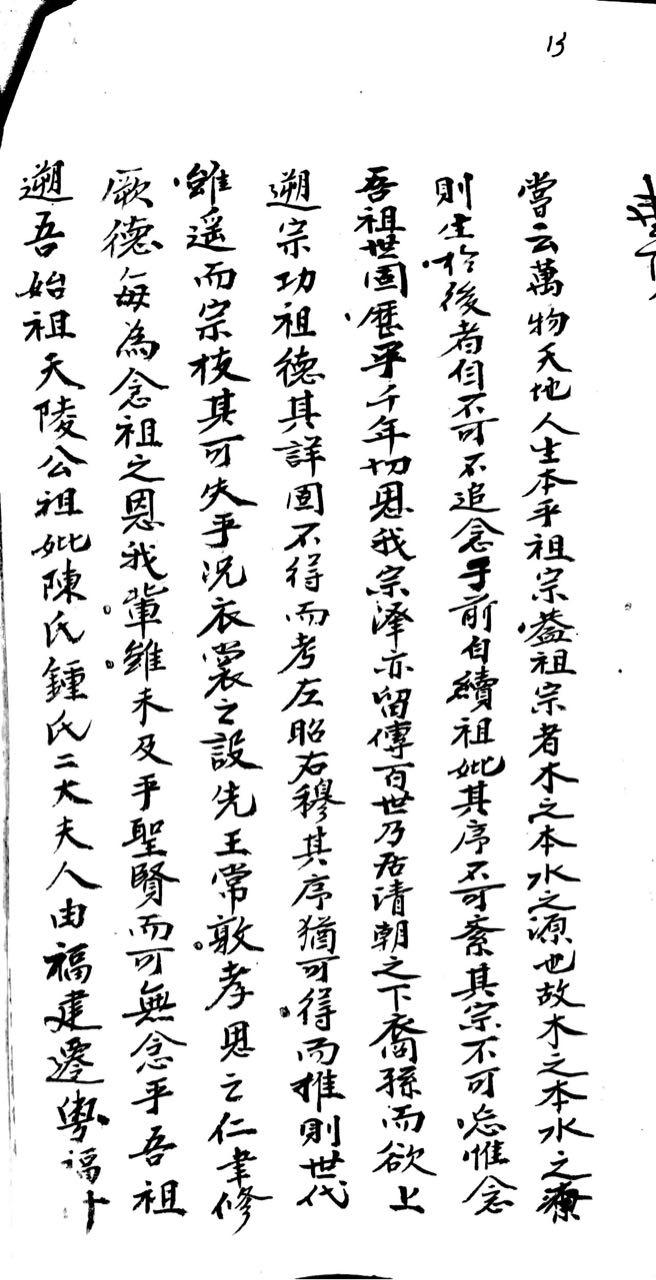 13
嘗云萬物天地人生本乎祖宗蓋祖宗者木之本水之源也故木之本水之源
則生於後者但不可不追念于前自續祖妣其序不可紊其宗不可忘惟念
吾祖世固歷乎千年切思我宗澤亦留傳百世乃居清朝之下裔孫而欲上
遡宗功祖德其詳固不得而考左昭右穆其序猶可得而推則世代
雖遥而宗枝其可失乎况衣裳之設先王常敦孝思之仁聿修
厥德每為念祖之恩我輩雖未及乎聖賢而可無念乎吾祖
遡吾始祖天陵公祖妣陳氏鍾氏二大夫人由福建遷粵福十